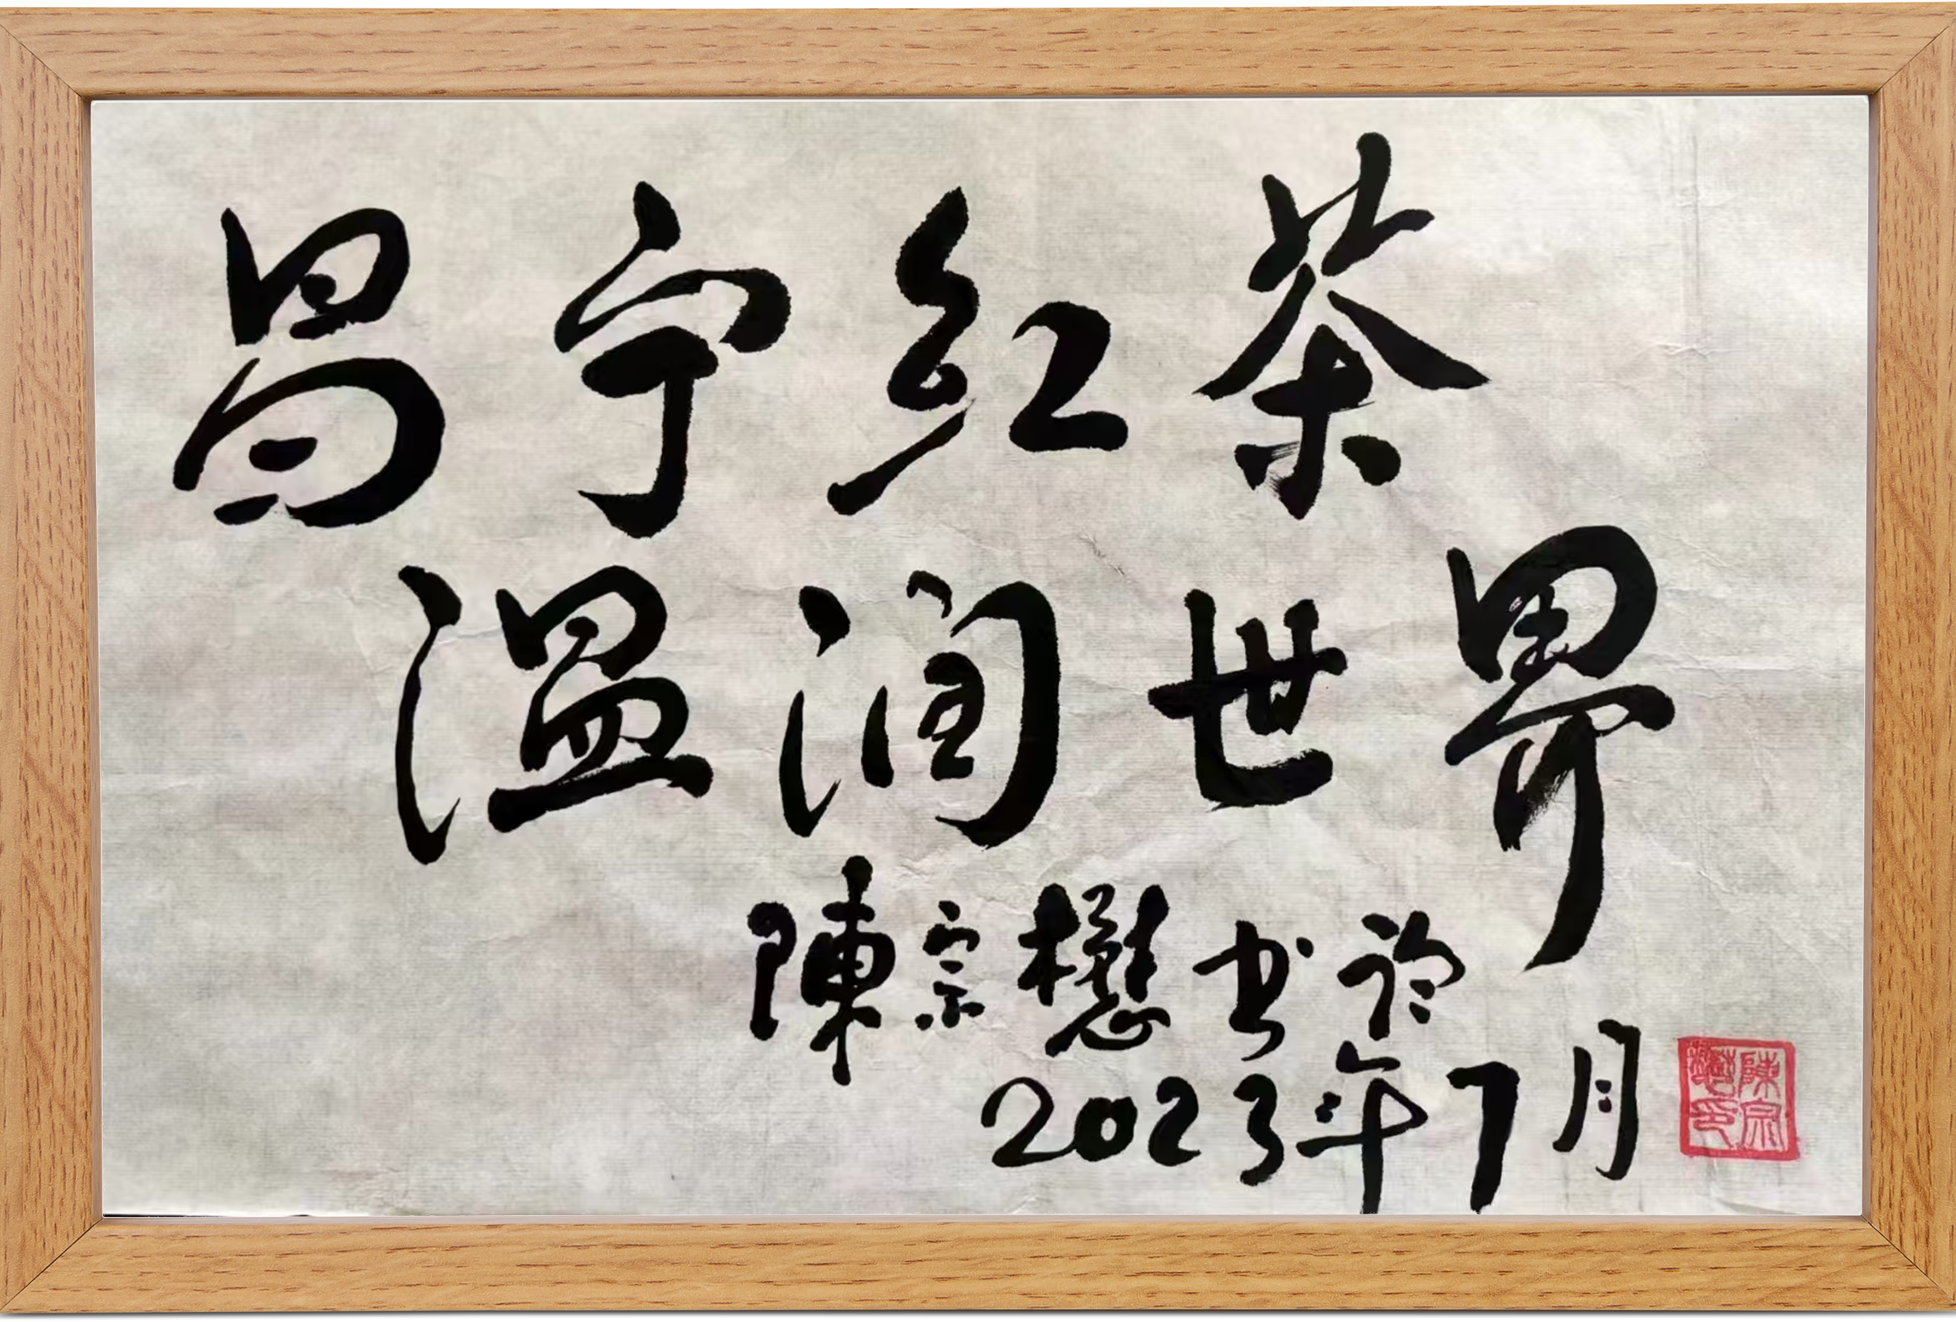 昌宁红茶
温润世界
陳宗懋书於
2023年7月
陳宗懋印